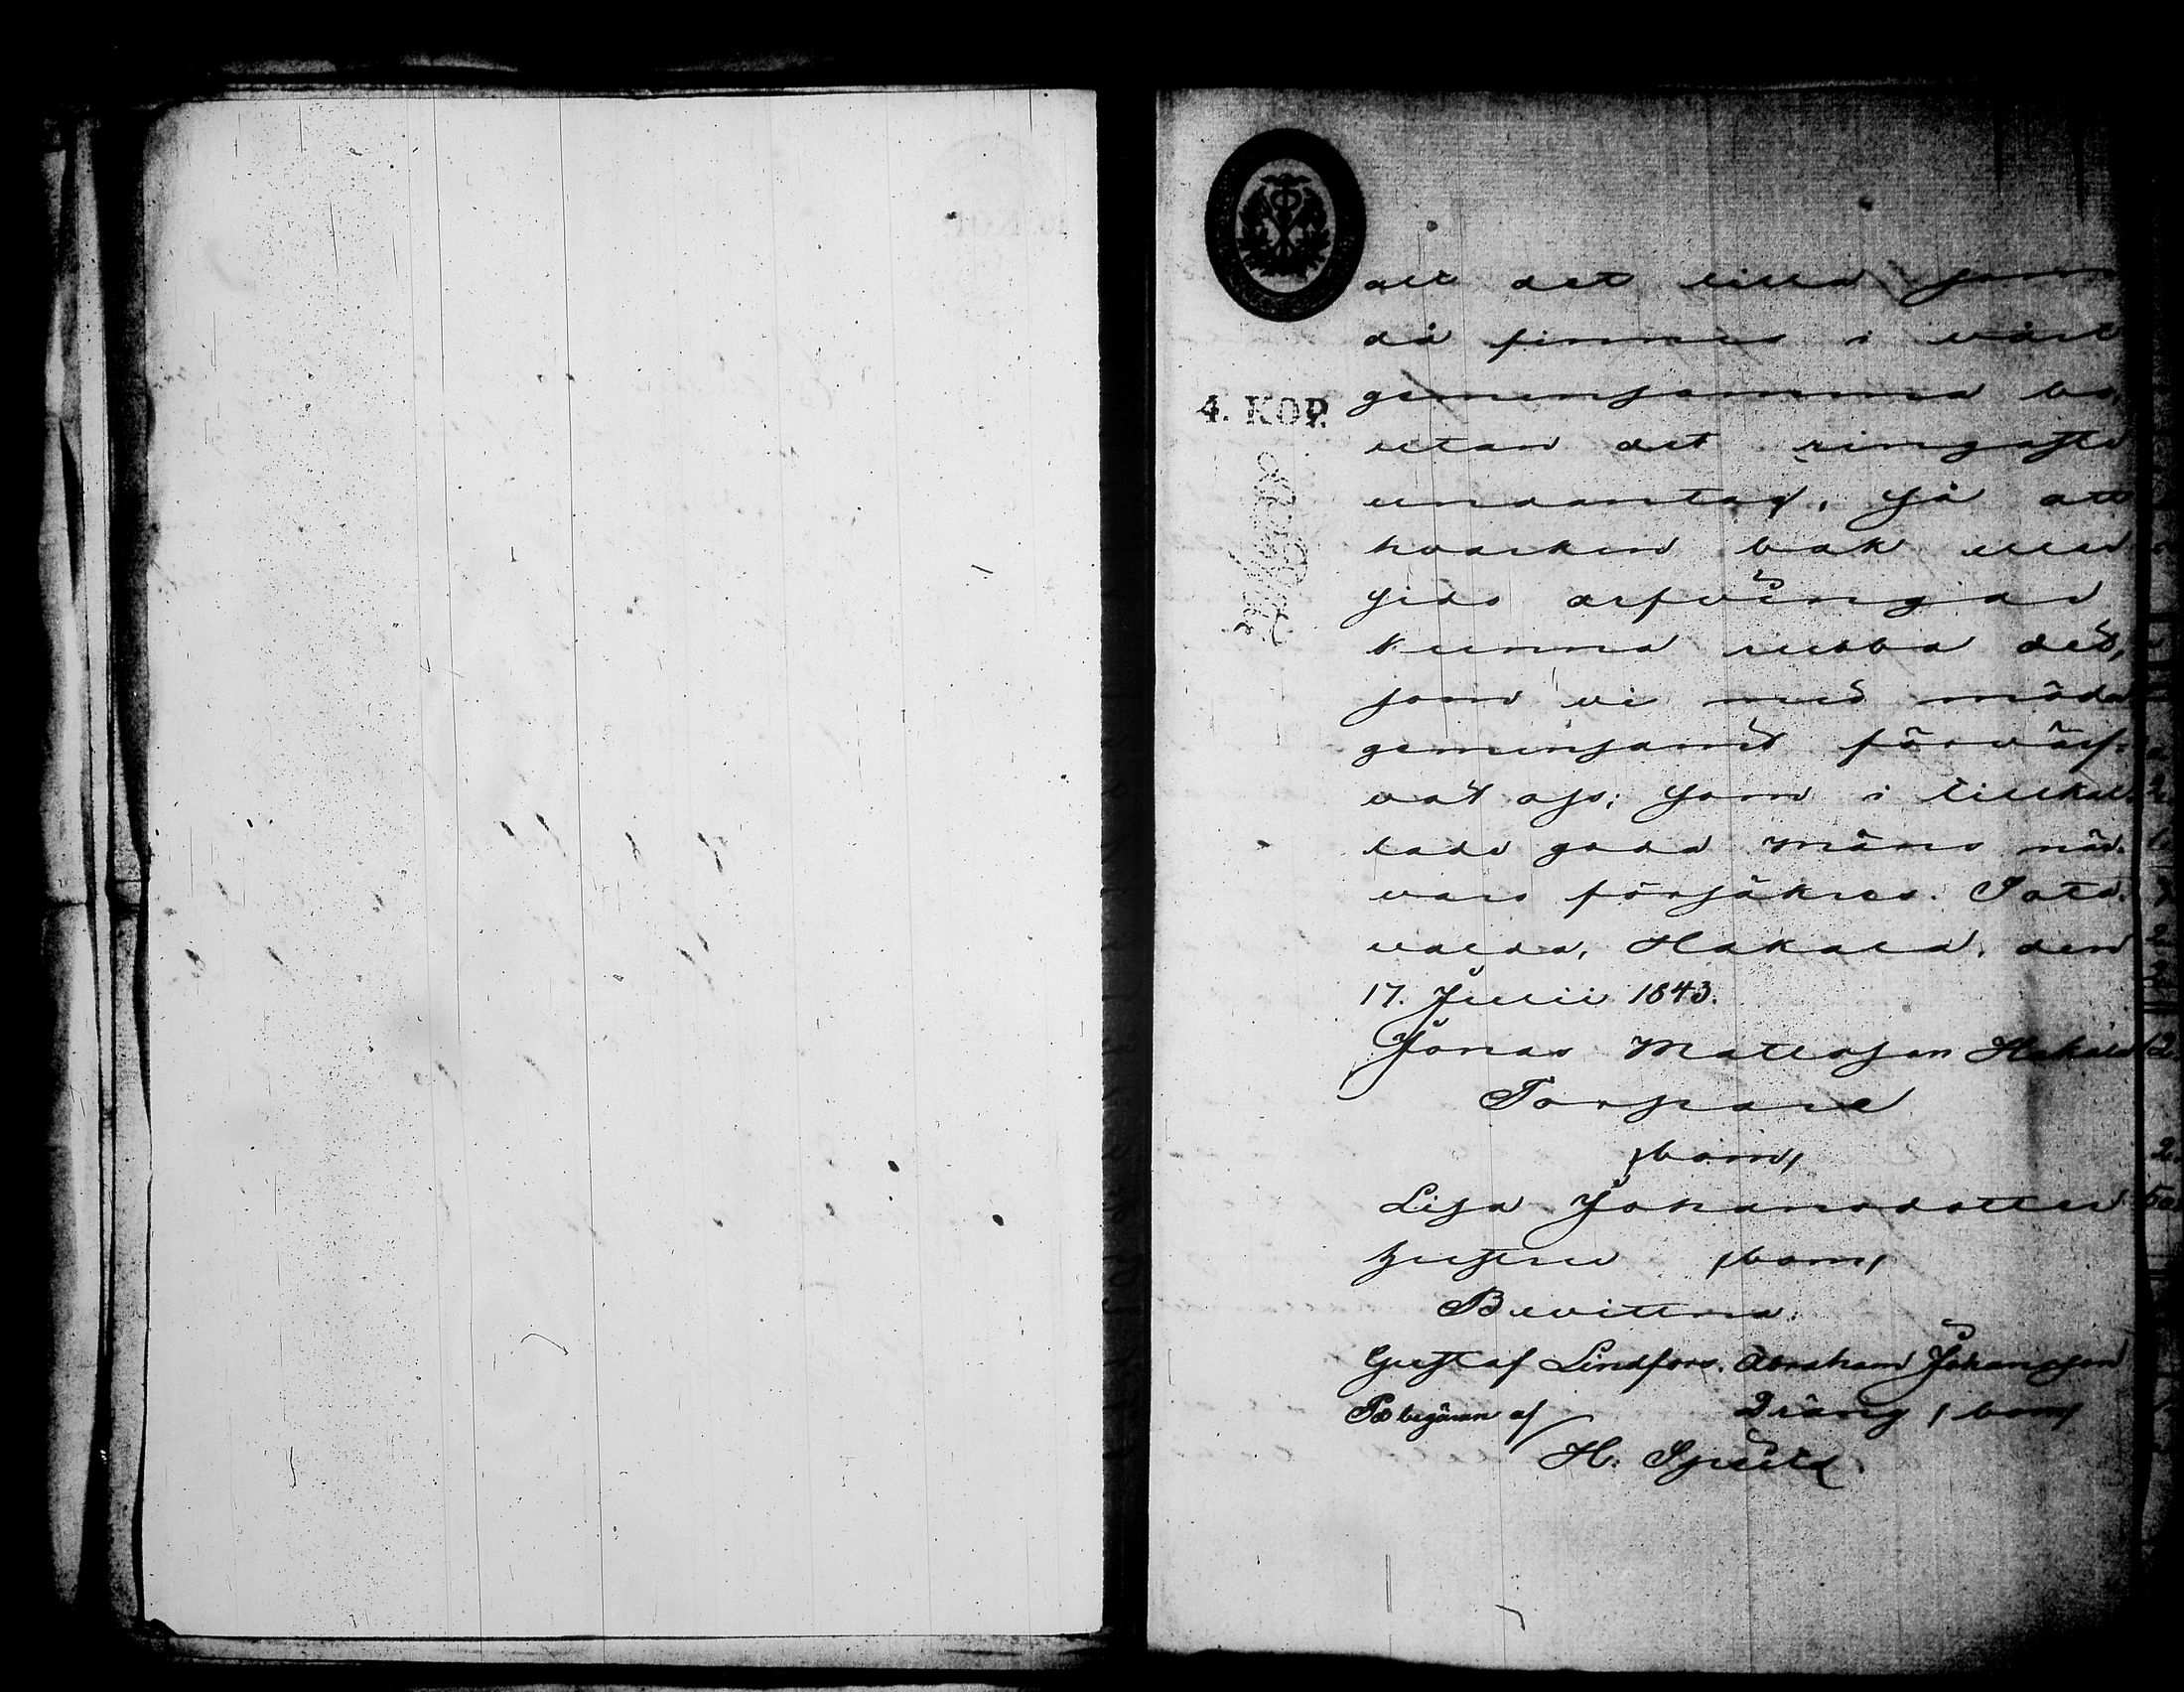 allt det lilla som
då finnes i vårt
4. KOP.
gemensamma bo,
utan det ringaste
undantag, så att
hvarken bak eller
sido arfvingar
kunna rubba det,
som vi med möda
gemensamt förvärf-
vat oss; som i tillkal-
lade goda Mäns när-
varo försäkras. Sata-
valda, Hakala, den
17. Julii 1843.
Jonas Matlsson Hakala
Torpare
(bom)
Lisa Johansdotter
hustru (bom)
Bevittna:
Gustaf Lindfors. Abraham Johansson
På begäran af Dräng (bom)
H: